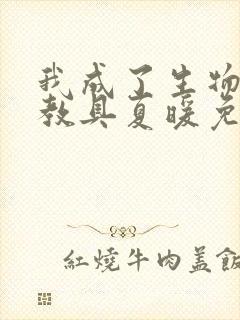 我成了生物
教具夏暖免
紅燒牛肉盖飯